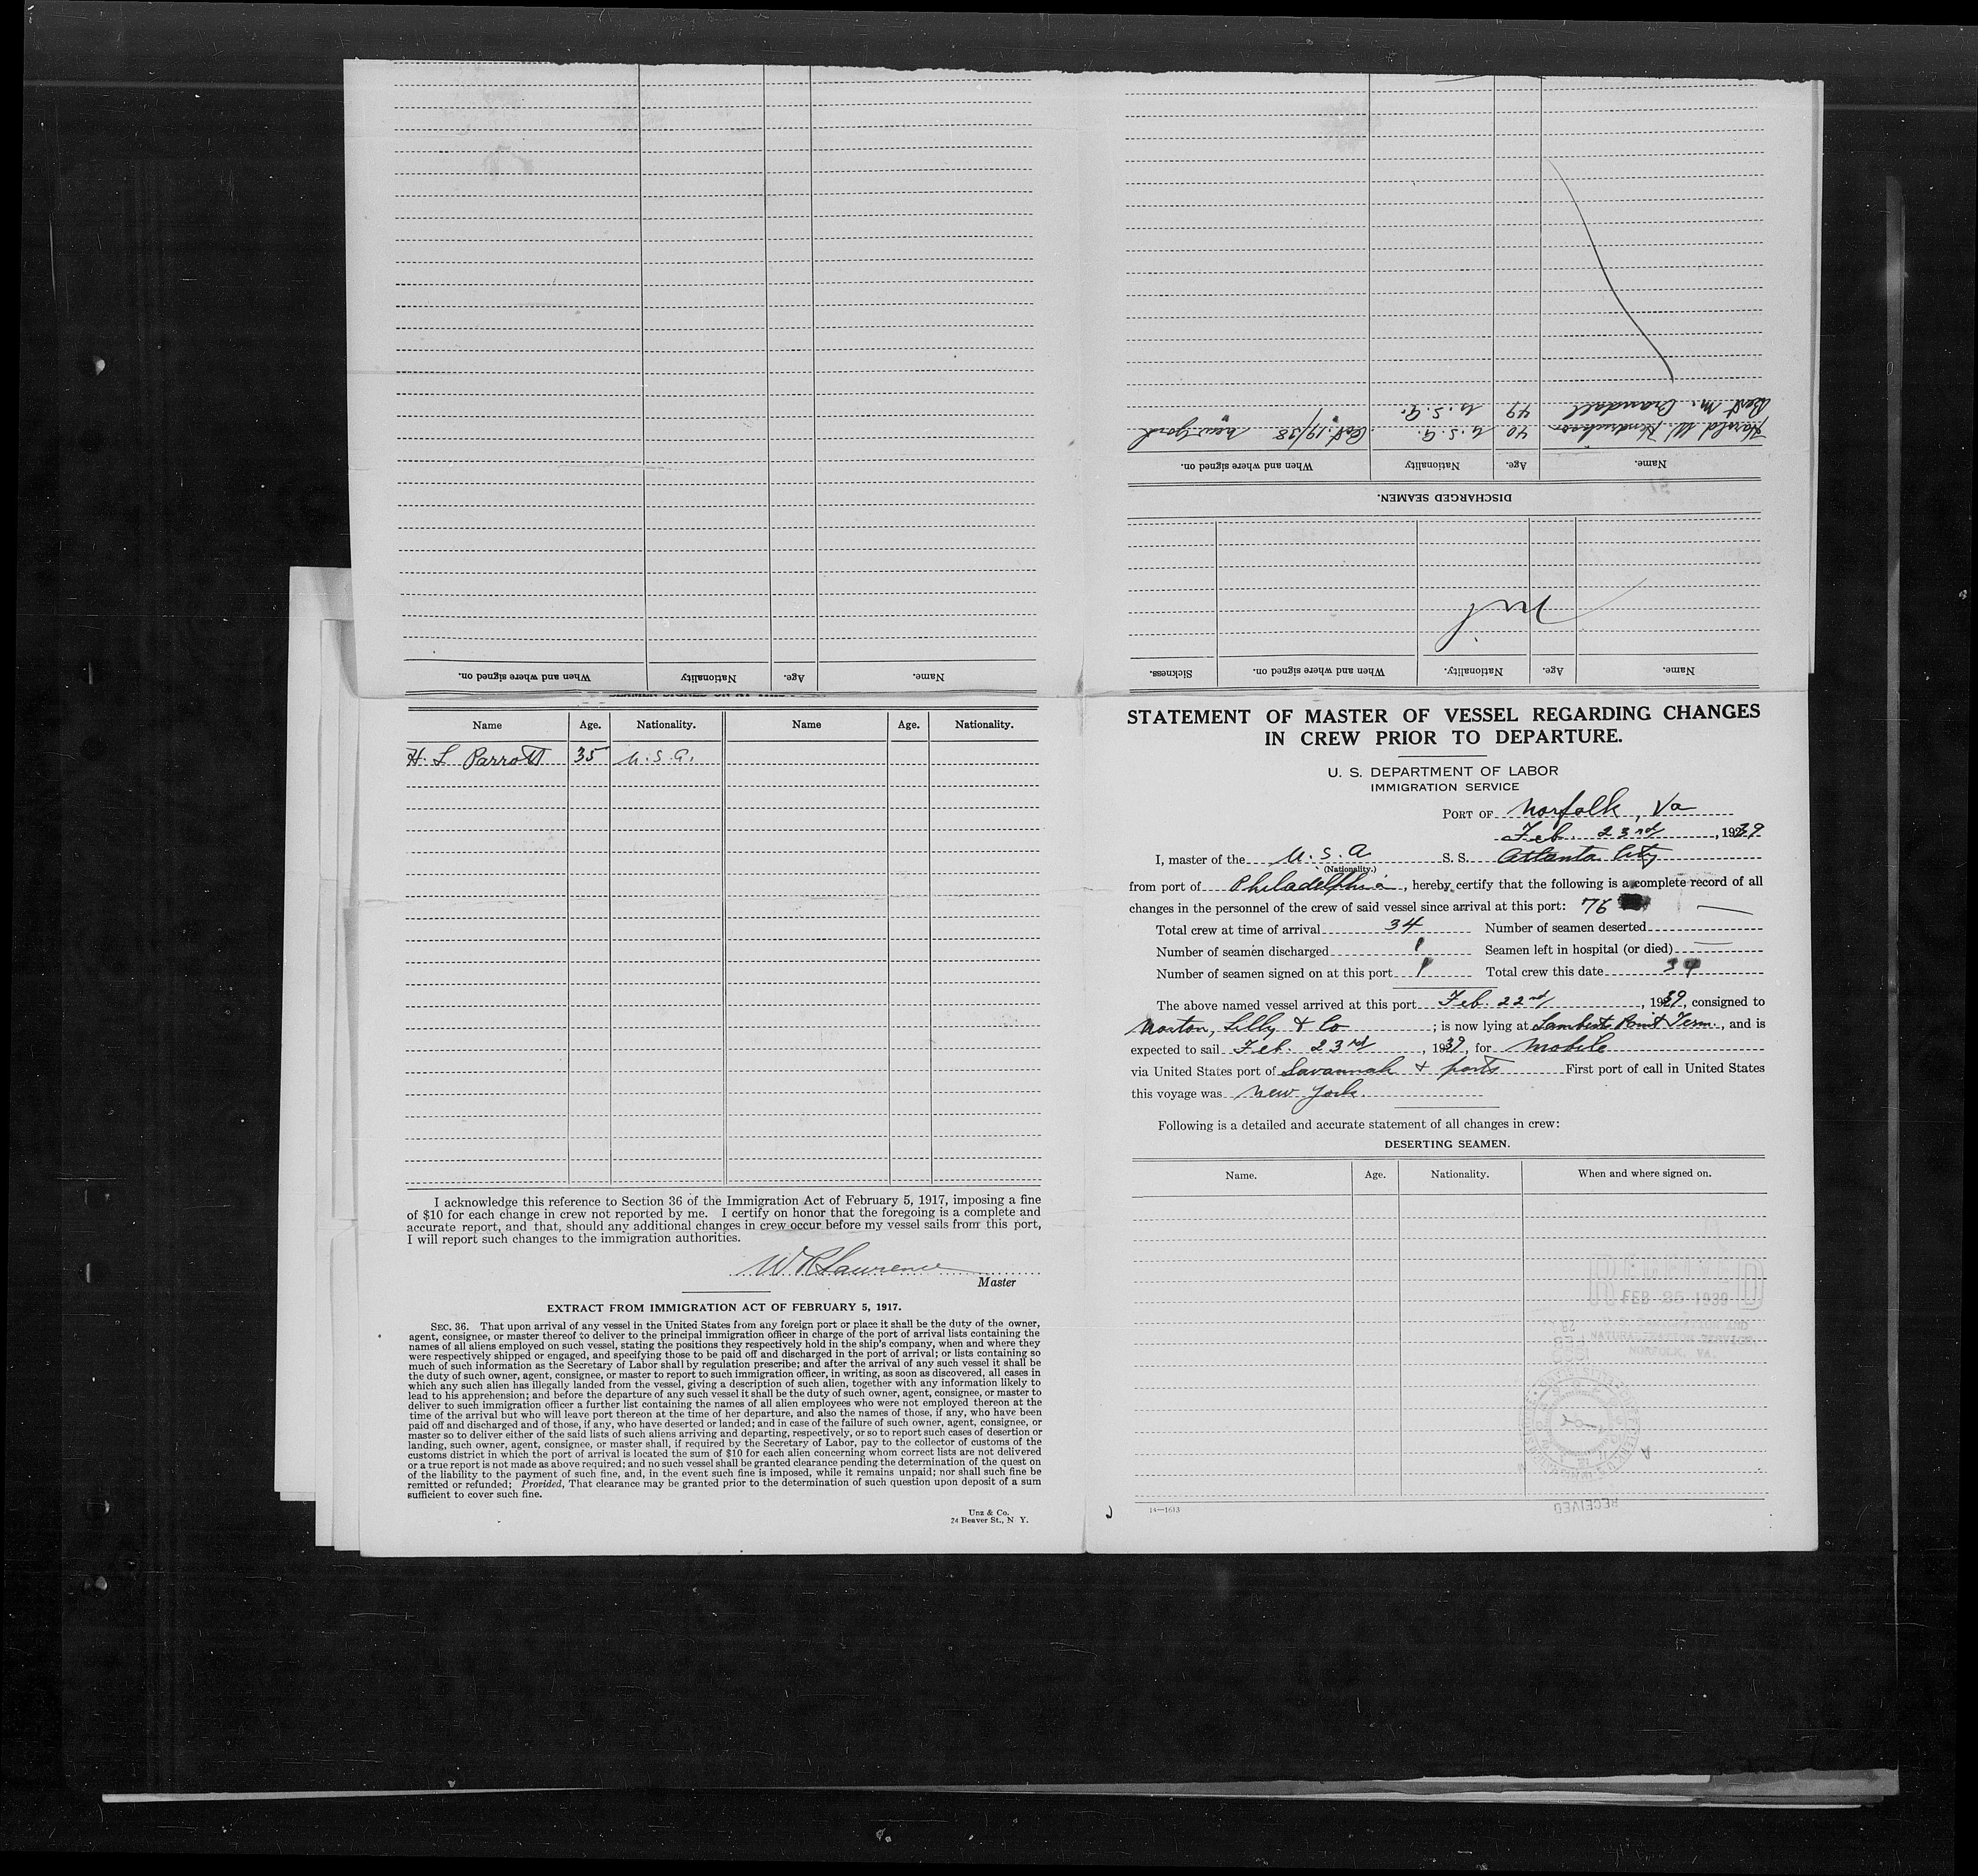 STATEMENT OF MASTER OF VESSEL REGARDING CHANGES
IN CREW PRIOR TO DEPARTURE.
U. S. DEPARTMENT OF LABOR
IMMIGRATION SERVICE
PORT OF Norfolk, Va
Feb. 23rd, 1939
I, master of the U.S.A S. S. Atlanta City
(Nationality.)
from port of Philadelphia, hereby certify that the following is a complete record of all
changes in the personnel of the crew of said vessel since arrival at this port: 76
Total crew at time of arrival 34 Number of seamen deserted —
Number of seamen discharged 1 Seamen left in hospital (or died) —
Number of seamen signed on at this port 1 Total crew this date 34
The above named vessel arrived at this port Feb. 22nd, 1939, consigned to
Norton, Lilly & Co ; is now lying at Lamberts Point Term., and is
expected to sail Feb. 23rd, 1939, for Mobile
via United States port of Savannah & ports First port of call in United States
this voyage was New York.
Following is a detailed and accurate statement of all changes in crew:
DESERTING SEAMEN.
Name. Age. Nationality. When and where signed on.
FEB 25 1939
NATURALIZATION SERVICE
NORFOLK, VA.
RECEIVED
14—1613
Name. Age. Nationality. When and where signed on. Sickness.
DISCHARGED SEAMEN.
Name. Age. Nationality When and where signed on.
Harold W. 40 U.S.A. Oct. 19/38 New York
Bert M. Crandall 49 U.S.A. " "
Name. Age. Nationality When and where signed on.
Name Age. Nationality. Name Age. Nationality.
H. L Parrott 35 U.S.A.
I acknowledge this reference to Section 36 of the Immigration Act of February 5, 1917, imposing a fine
of $10 for each change in crew not reported by me. I certify on honor that the foregoing is a complete and
accurate report, and that, should any additional changes in crew occur before my vessel sails from this port,
I will report such changes to the immigration authorities.
W R Lawrence
Master
EXTRACT FROM IMMIGRATION ACT OF FEBRUARY 5, 1917.
SEC. 36. That upon arrival of any vessel in the United States from any foreign port or place it shall be the duty of the owner,
agent, consignee, or master thereof to deliver to the principal immigration officer in charge of the port of arrival lists containing the
names of all aliens employed on such vessel, stating the positions they respectively hold in the ship's company, when and where they
were respectively shipped or engaged, and specifying those to be paid off and discharged in the port of arrival; or lists containing so
much of such information as the Secretary of Labor shall by regulation prescribe; and after the arrival of any such vessel it shall be
the duty of such owner, agent, consignee, or master to report to such immigration officer, in writing, as soon as discovered, all cases in
which any such alien has illegally landed from the vessel, giving a description of such alien, together with any information likely to
lead to his apprehension; and before the departure of any such vessel it shall be the duty of such owner, agent, consignee, or master to
deliver to such immigration officer a further list containing the names of all alien employees who were not employed thereon at the
time of the arrival but who will leave port thereon at the time of her departure, and also the names of those, if any, who have been
paid off and discharged and of those, if any, who have deserted or landed; and in case of the failure of such owner, agent, consignee, or
master so to deliver either of the said lists of such aliens arriving and departing, respectively, or so to report such cases of desertion or
landing, such owner, agent, consignee, or master shall, if required by the Secretary of Labor, pay to the collector of customs of the
customs district in which the port of arrival is located the sum of $10 for each alien concerning whom correct lists are not delivered
or a true report is not made as above required; and no such vessel shall be granted clearance pending the determination of the quest on
of the liability to the payment of such fine, and, in the event such fine is imposed, while it remains unpaid; nor shall such fine be
remitted or refunded; Provided, That clearance may be granted prior to the determination of such question upon deposit of a sum
sufficient to cover such fine.
Unz & Co.
24 Beaver St., N Y.